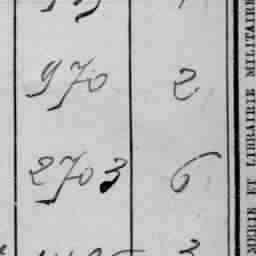 970 2
2703 6
MERIE ET LIBRAIRIE MILITAIRE